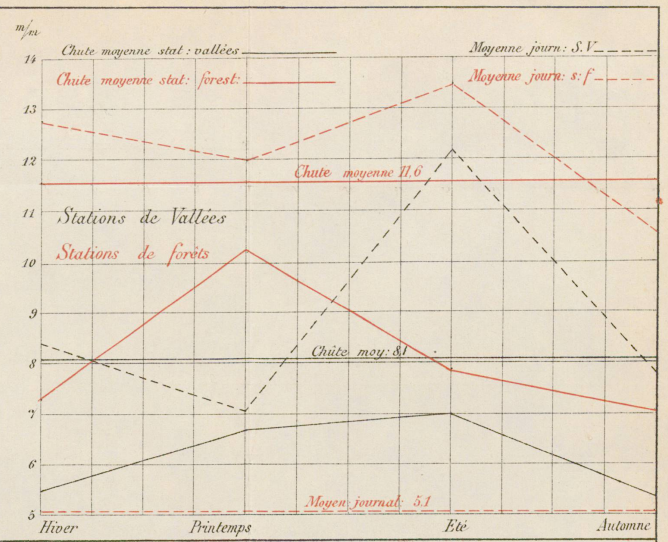 m/m
Chute moyenne stat: vallées
Moyenne journ: S.V
14
Chute moyenne stat: forest:
Moyenne journ: s: f
13
12
Chute moyenne 11,6
11
Stations de Vallées
Stations de forêts
10
9
Chûte moy: 8,1
8
7
6
Moyen journal: 5.1
5
Hiver Printemps Eté Automne